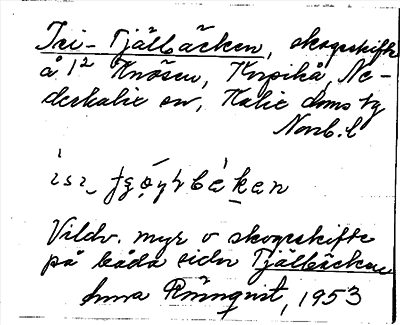 Isi-Tjälbäcken, skogsskifte
å 1² Knösen, Korpikå, Ne-
derkalix sn, Kalix doms tg
Norrb. l
Vildv. myr o skogsskifte
på båda sidor Tjälbäcken
Anna Rönnqvist, 1953